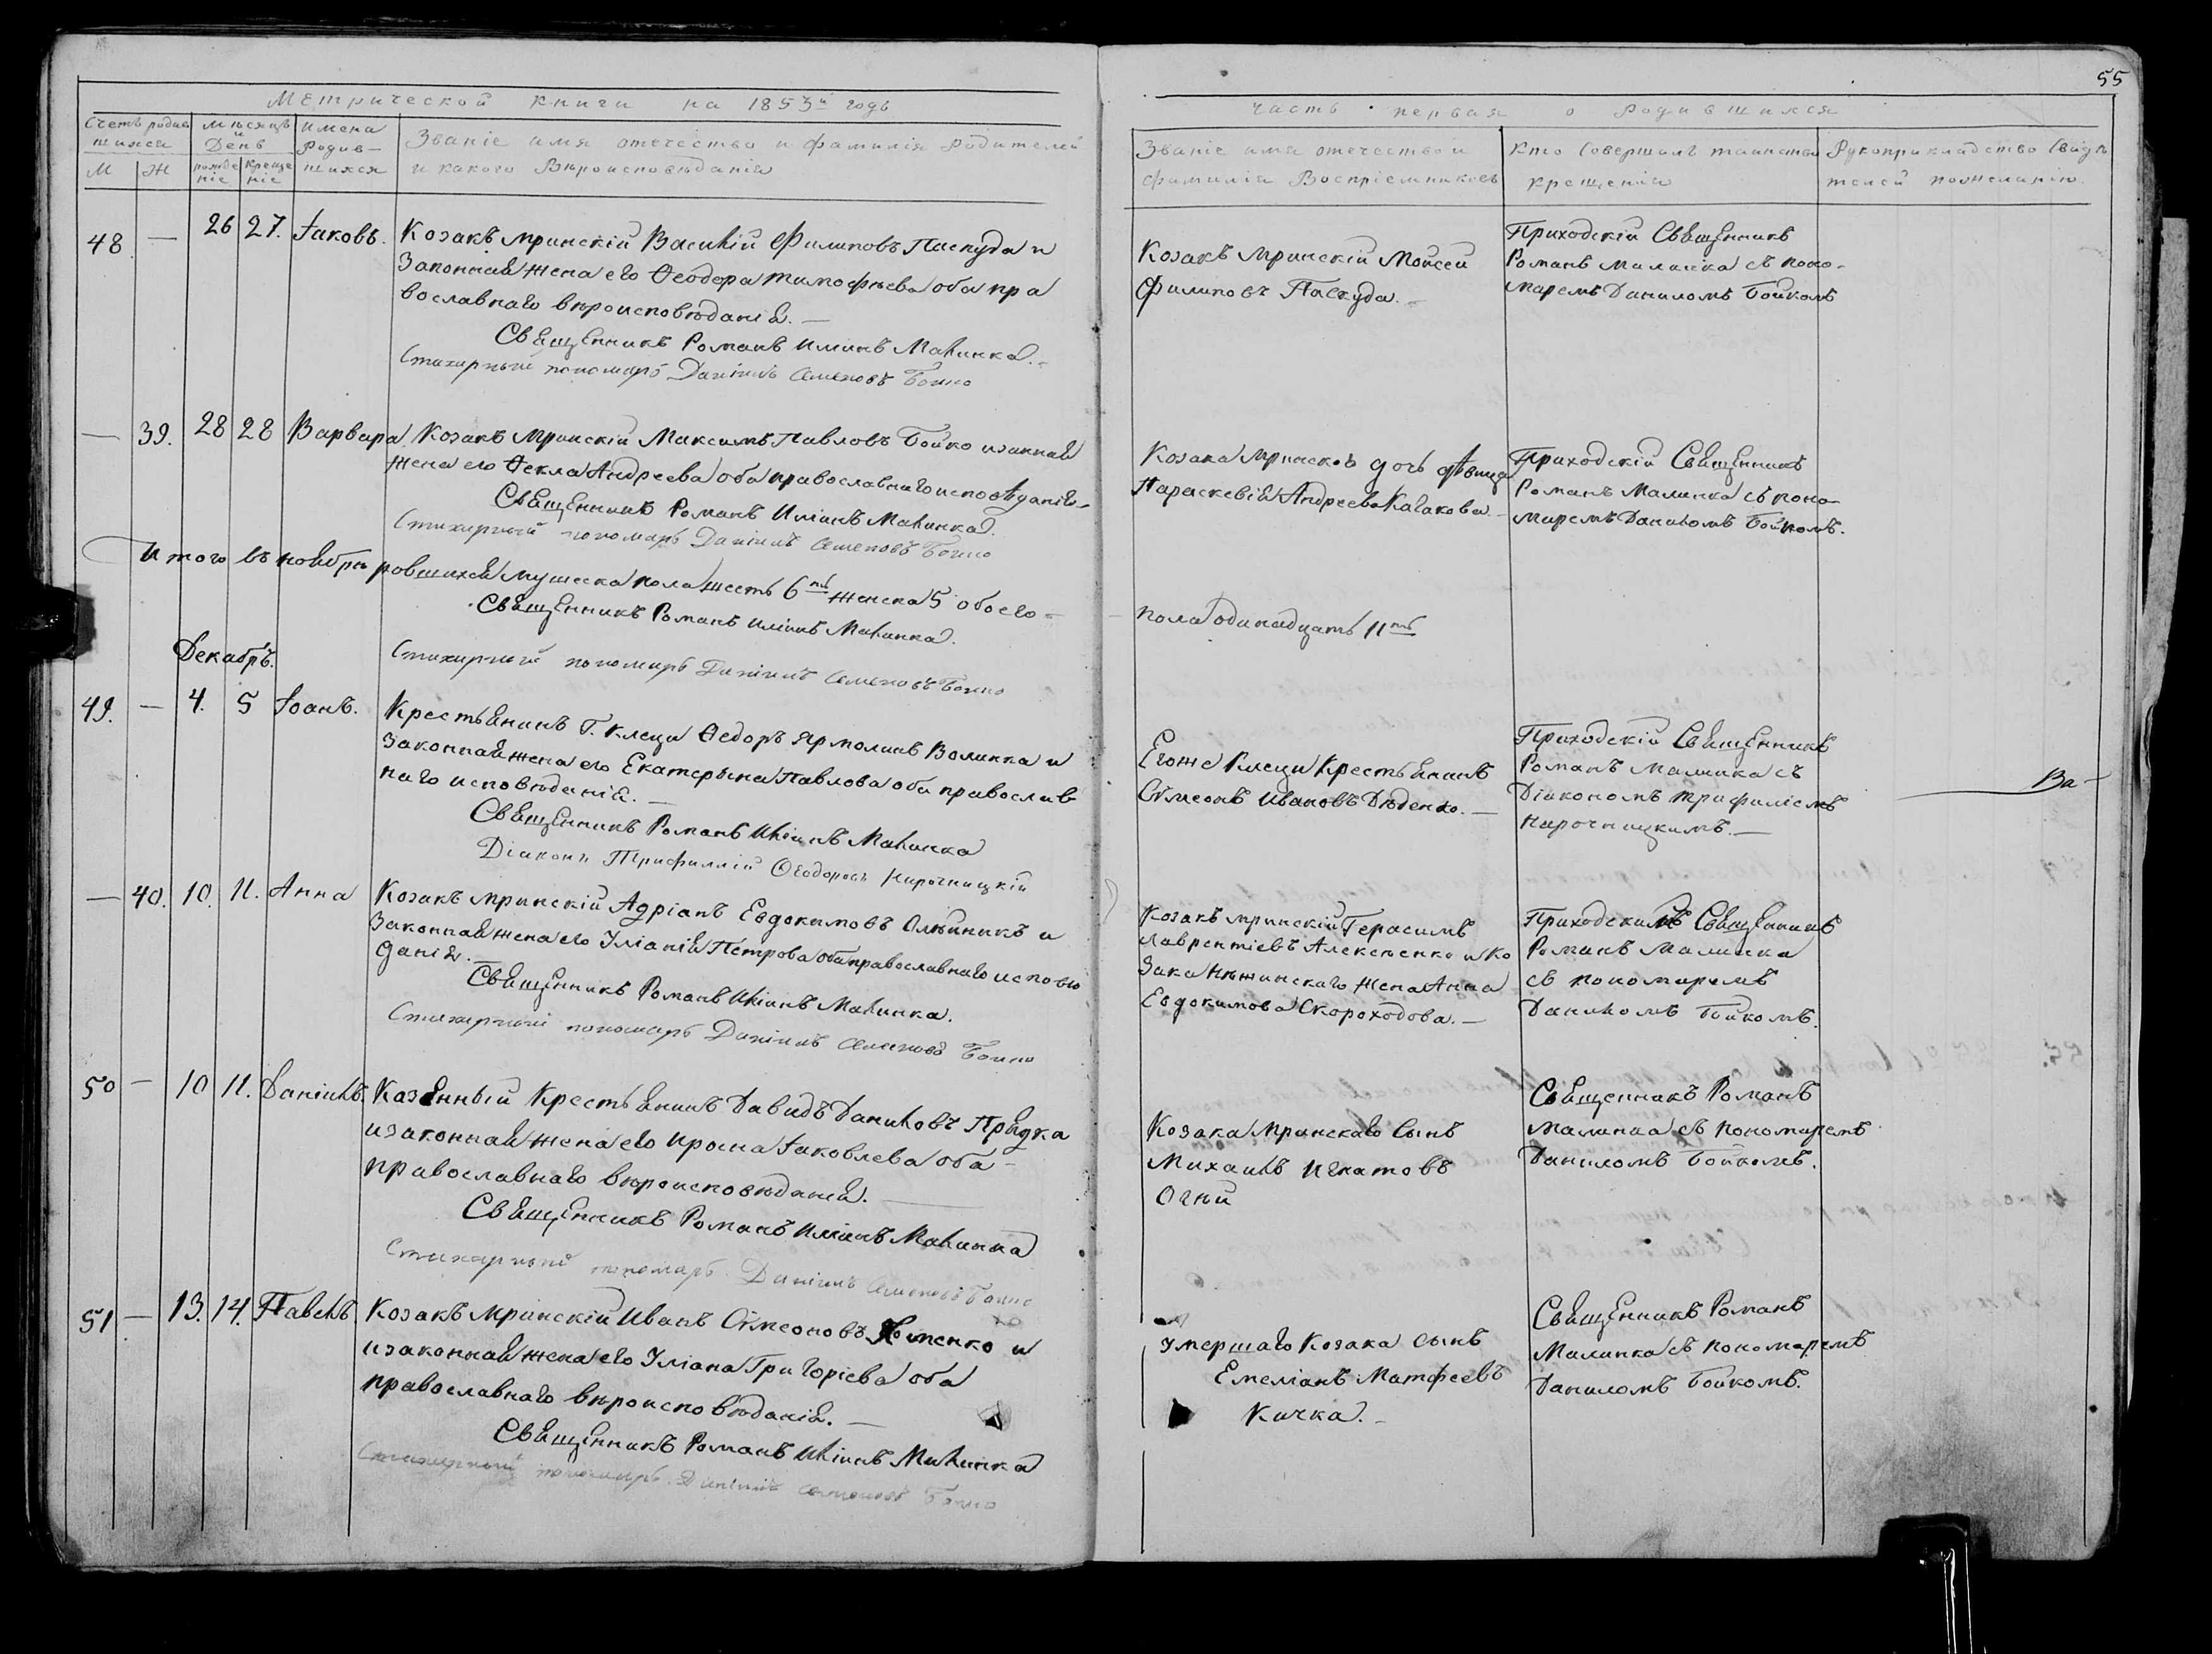 55
Метрической книги на 1853й годъ
часть первая о родившихся
Счетъ родив
шихся
М Ж
мѣсяцъ
и
День
рожде
ніе
креще
ніе
имена
родив-
шихся
Званіе имя отечество и фамилія родителей
и какого Вѣроисповѣданія
Званіе имя отечество и
фамилія Воспріемниковъ
Кто совершалъ таинство
крещенія
Рукоприкладство свидѣ
телей пожеланію
48 — 26 27. Іаковъ.
Козакъ мринскій Василій Филиповъ Паскуда и
Законная жена его Ѳеодора тимофѣева оба пра
вославнаго вѣроисповѣданія. —
Священникъ Романъ Иліинъ Малинка.
Стихирный пономарь Даніилъ Семеновъ Бойко
Козакъ мринскій Моисей
Филиповъ Паскуда.
Приходскій Священникъ
Романъ Малинка съ поно-
маремъ Даниломъ Бойкомъ
— 39. 28 28 Варвара
Козакъ мринскій Максимъ Павловъ Бойко изаконная
жена его Ѳекла Андреева оба православнаго исповѣданія-
Священникъ Романъ Иліинъ Малинка.
Стихирный пономарь Даніилъ Семеновъ Бойко
Козака мринского дочь дѣвица
Параскевія Андреева
Приходскій Священникъ
Романъ Малинка съ поно-
маремъ Даниломъ Бойкомъ.
Итого въ ноябрѣ ровшихся мужеска пола шесть 6ть женска 5 обоего-
пола одинадцать 11ть
Священникъ Романъ Иліинъ Малинка.
Стихирный пономарь Даніилъ Семеновъ Бойко
Декабрь.
49. — 4. 5 Іоанъ.
Крестьянинъ Г. Клеци Ѳедоръ Ярмолинъ Волинка и
Законная жена его Екатерына Павлова оба православ
наго исповѣданія. —
Священникъ Романъ Иліинъ Малинка
Діаконъ Трифиллій Ѳеодоровъ Нарочницкій
Егоже Клеци Крестьянинъ
Сѵмеонъ Ивановъ Дѣденко. —
Приходскій Священникъ
Романъ Малинка съ
Діакономъ трифиліемъ
Нарочницкимъ. —
Ва-
— 40. 10. 11. Анна
Козакъ мринскій Адріанъ Евдокимовъ Олѣйникъ и
Законная жена его Уліанія Петрова оба православнаго исповѣ
данія.
Священникъ Романъ Иліинъ Малинка.
Стихирный пономарь Даніилъ Семеновъ Бойко
Козакъ мринскій Герасимъ
Лаврентіевъ Алексѣенко и Ко
Зака нѣжинскаго жена Анна
Евдокимова Скороходова. —
Приходскимъ Священникъ
Романъ Малинка
съ пономаремъ
Даниломъ Бойкомъ.
50 — 10 11. Даніилъ.
Казенный Крестьянинъ Давидъ Даниловъ Прядка
изаконная жена его Ироина Іаковлева оба-
православнаго вѣроисповѣданія. —
Священникъ Романъ Иліинъ Малинка
Стихарный пономарь Даніилъ Семеновъ Бойко
Козака Мринскаго Сынъ
Михаилъ Игнатовъ
Огній
Священникъ Романъ
Малинка съ пономаремъ
Даниломъ Бойкомъ.
51 — 13. 14. Павелъ.
Козакъ Мринскій Иванъ Сѵмеоновъ Хоменко и
изаконная жена его Уліана Григоріева оба
православнаго вѣроисповѣданія. —
Священникъ Романъ Иліинъ Малинка
Стихирный пономарь Даніилъ Семеновъ Бойко
умершаго Козака сынъ
Емеліанъ Матфеевъ
Кичка.
Священникъ Романъ
Малинка съ пономаремъ
Даниломъ Бойкомъ.